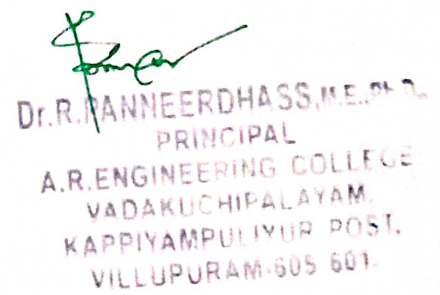 Dr.R.PANNEERDHASS,M.E.,Ph.D.,
PRINCIPAL
A.R.ENGINEERING COLLEGE
VADAKUCHIPALAYAM.
KAPPIYAMPULIYUR POST,
VILLUPURAM-605 601.